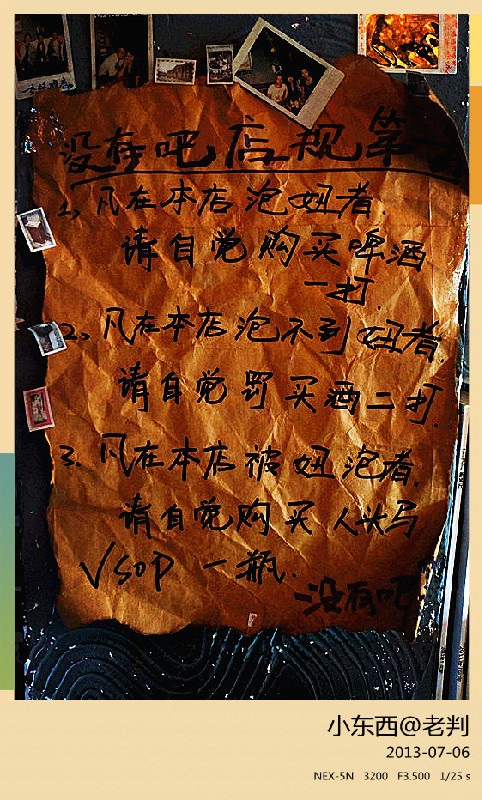 没有吧店规第一
1、凡在本店泡妞者.
请自觉购买啤酒
一打.
2、凡在本店泡不到妞者.
请自觉罚买酒二打.
3、凡在本店被妞泡者.
请自觉购买人头马
VSOP 一瓶.
—没有吧
小东西@老判
2013-07-06
NEX-5N 3200 F3.500 1/25 s